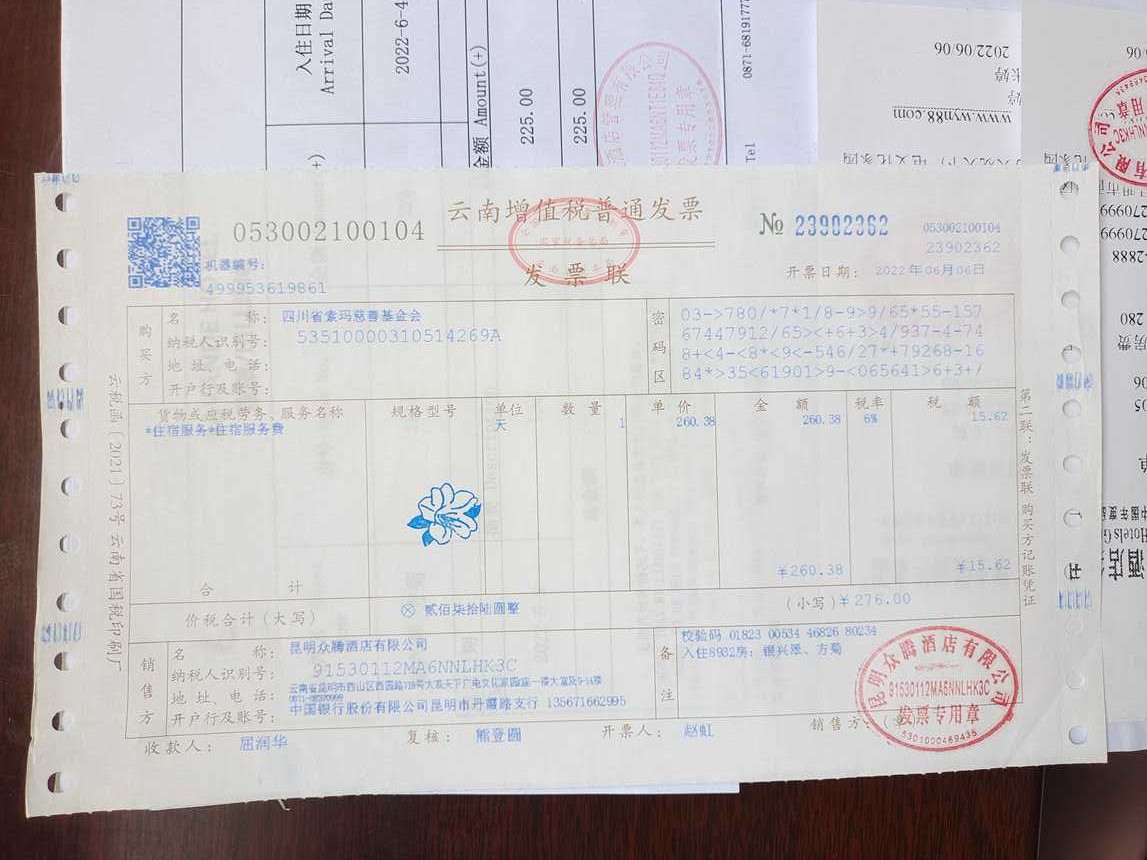 入住日期
Arrival Da
2022-6-4
金额 Amount(+)
225.00
225.00
发票专用章
0871-6819177
Tel
2022/06/06
www.wyn88.com
云南增值税普通发票
发票联
053002100104
№ 23902362
053002100104
23902362
机器编号:
499953619861
开票日期: 2022年06月06日
购买方
名 称: 四川省索玛慈善基金会
纳税人识别号: 53510000310514269A
地 址、电 话:
开户行及账号:
密码区
03->780/*7*1/8-9>9/65*55-157
67447912/65><+6+3>4/937-4-74
8+<4-<8*<9<-546/27*+79268-16
84*>35<61901>9-<065641>6+3+/
货物或应税劳务、服务名称 规格型号 单位 数 量 单 价 金 额 税率 税 额
*住宿服务*住宿服务费 天 1 260.38 260.38 6% 15.62
合 计 ¥260.38 ¥15.62
价税合计(大写) ⊗ 贰佰柒拾陆圆整 (小写)¥276.00
销售方
名 称: 昆明众腾酒店有限公司
纳税人识别号: 91530112MA6NNLHK3C
地 址、电 话:
开户行及账号: 中国银行股份有限公司昆明市丹霞路支行 135671662995
备注
校验码 01823 00534 46826 80234
入住8932房: 银兴翠、方菊
收款人: 屈润华 复核: 熊登圆 开票人: 赵虹 销售方:(章)
昆明众腾酒店有限公司
91530112MA6NNLHK3C
发票专用章
5301000469435
云税函〔2021〕73号云南省国税印刷厂
第二联:发票联 购买方记账凭证